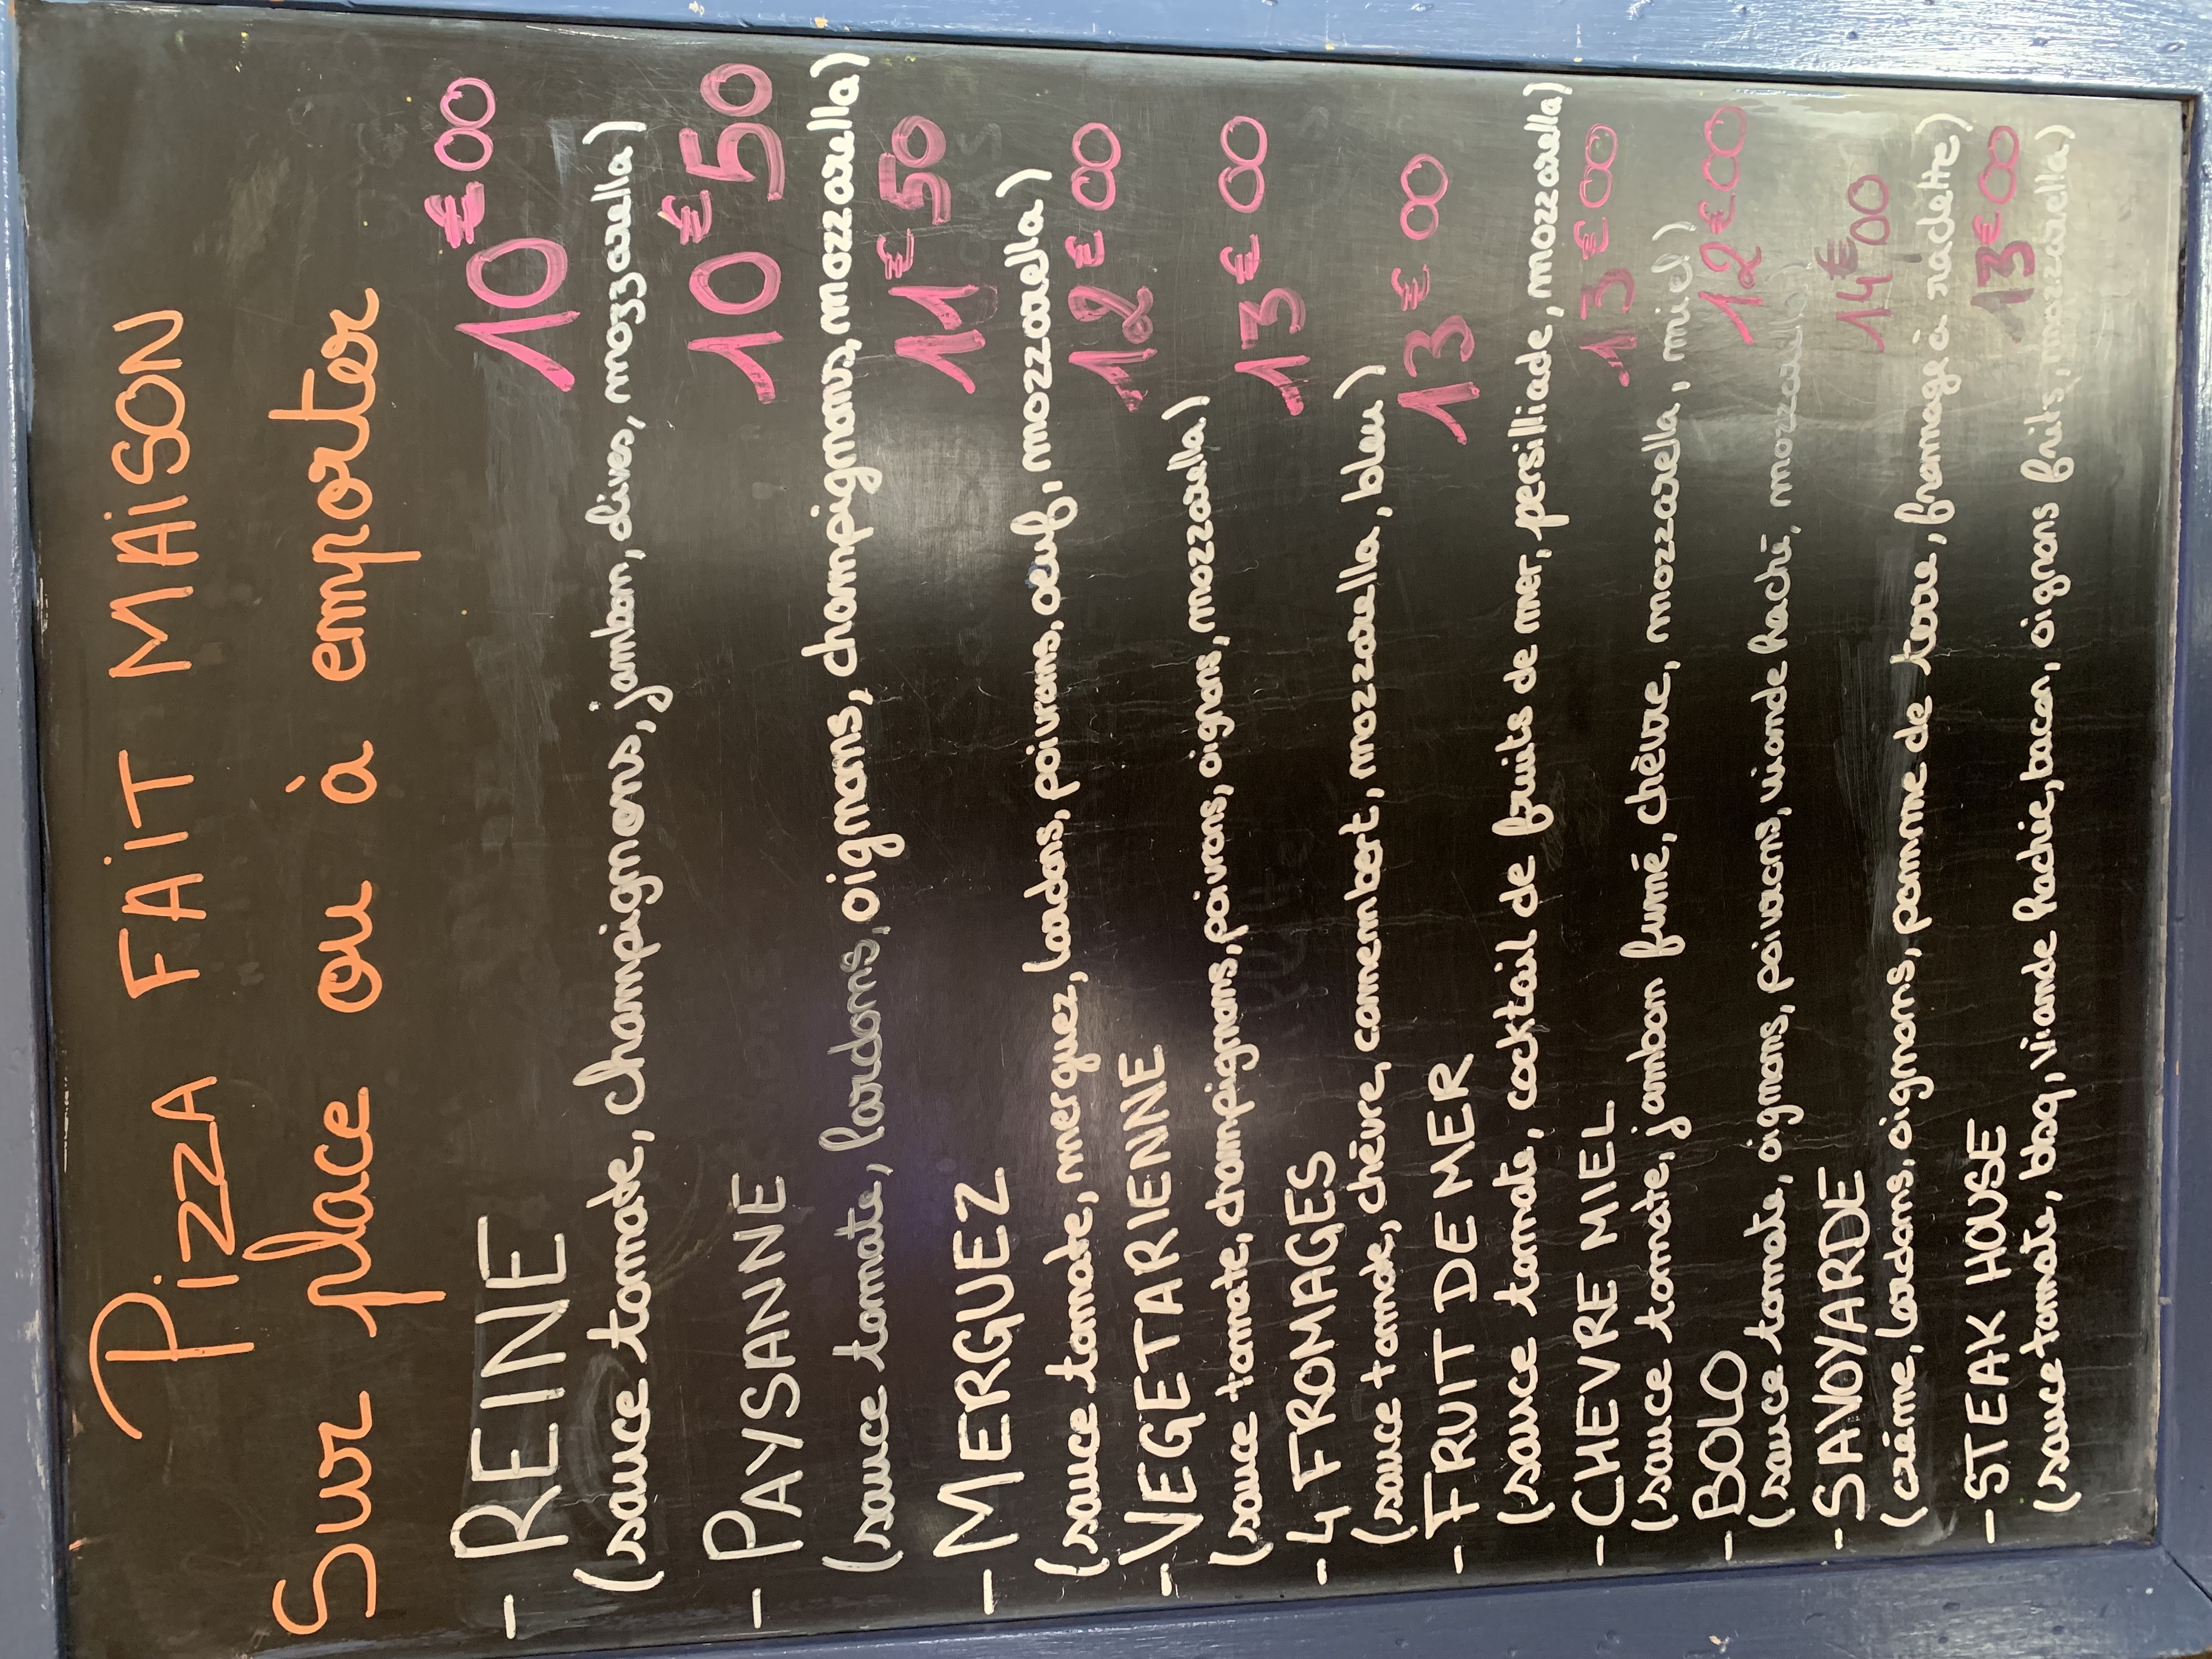 Pizza FAIT MAISON
Sur place ou à emporter
- REINE 10€00
(sauce tomate, champignons, jambon, olives, mozzarella)
- PAYSANNE 10€50
(sauce tomate, lardons, oignons, champignons, mozzarella)
- MERGUEZ 11€50
(sauce tomate, merguez, lardons, poivrons, œuf, mozzarella)
- VEGETARIENNE 12€00
(sauce tomate, champignons, poivrons, oignons, mozzarella)
- 4 FROMAGES 13€00
(sauce tomate, chèvre, camembert, mozzarella, bleu)
- FRUIT DE MER 13€00
(sauce tomate, cocktail de fruits de mer, persilliade, mozzarella)
- CHEVRE MIEL 13€00
(sauce tomate, jambon fumé, chèvre, mozzarella, miel)
- BOLO 12€00
(sauce tomate, oignons, poivrons, viande haché, mozzarella)
- SAVOYARDE 14€00
(crème, lardons, oignons, pomme de terre, fromage à raclette)
- STEAK HOUSE 13€00
(sauce tomate, bbq, viande hachée, bacon, oignons frits, mozzarella)